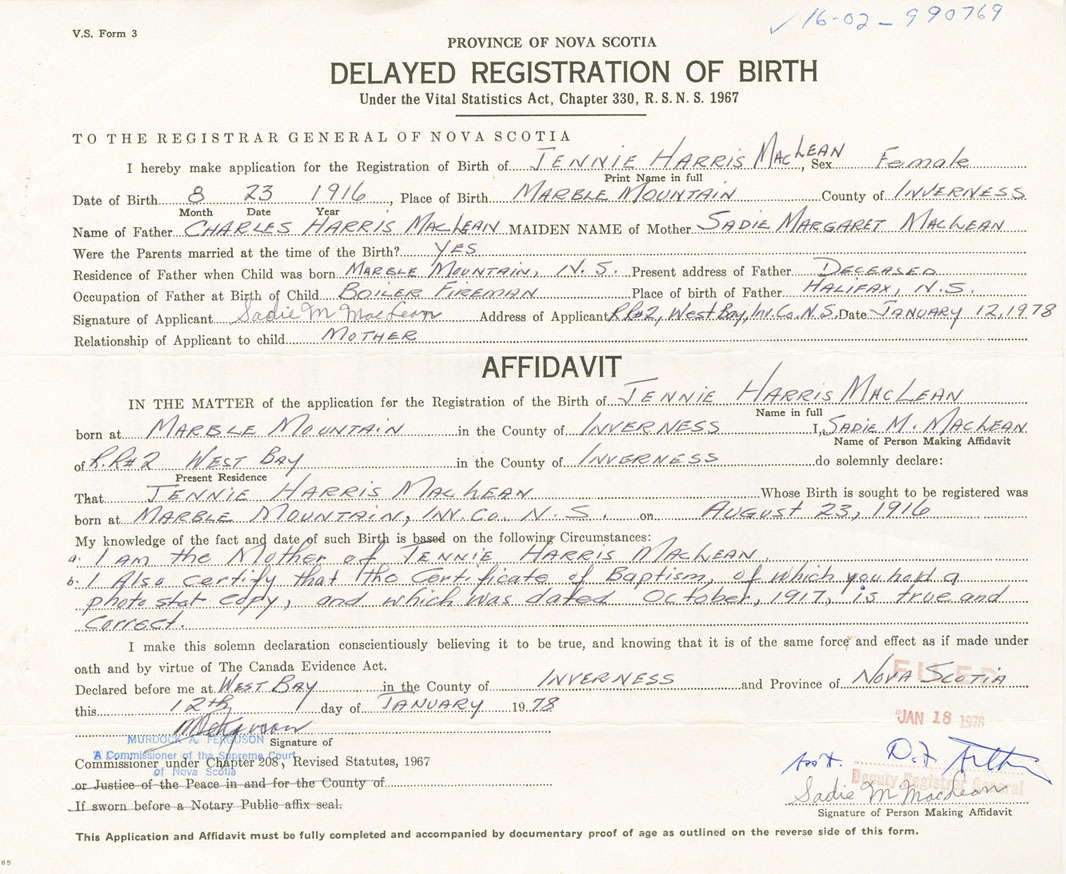 V.S. Form 3
✓ 16-02-990769
PROVINCE OF NOVA SCOTIA
DELAYED REGISTRATION OF BIRTH
Under the Vital Statistics Act, Chapter 330, R.S.N.S. 1967
TO THE REGISTRAR GENERAL OF NOVA SCOTIA
I hereby make application for the Registration of Birth of JENNIE HARRIS MACLEAN, Sex Female
Print Name in full
Date of Birth 8 23 1916, Place of Birth MARBLE MOUNTAIN County of INVERNESS
Month Date Year
Name of Father CHARLES HARRIS MACLEAN MAIDEN NAME of Mother SADIE MARGARET MACLEAN
Were the Parents married at the time of the Birth? YES
Residence of Father when Child was born MARBLE MOUNTAIN, N.S. Present address of Father DECEASED
Occupation of Father at Birth of Child BOILER FIREMAN Place of birth of Father HALIFAX, N.S.
Signature of Applicant Sadie M MacLean Address of Applicant R.R#2, West Bay, Inv. Co. N.S. Date JANUARY 12, 1978
Relationship of Applicant to child MOTHER
AFFIDAVIT
IN THE MATTER of the application for the Registration of the Birth of JENNIE HARRIS MACLEAN
Name in full
born at MARBLE MOUNTAIN in the County of INVERNESS I, SADIE M. MACLEAN
Name of Person Making Affidavit
of R.R#2 WEST BAY in the County of INVERNESS do solemnly declare:
Present Residence
That JENNIE HARRIS MACLEAN Whose Birth is sought to be registered was
born at MARBLE MOUNTAIN, INV. CO. N.S. on AUGUST 23, 1916
My knowledge of the fact and date of such Birth is based on the following Circumstances:
a. I am the Mother of JENNIE HARRIS MACLEAN
b. I Also certify that the Certificate of Baptism, of which you hold a
photo stat copy, and which was dated October, 1917, is true and
correct.
I make this solemn declaration conscientiously believing it to be true, and knowing that it is of the same force and effect as if made under
oath and by virtue of The Canada Evidence Act.
FILED
Declared before me at WEST BAY in the County of INVERNESS and Province of NOVA SCOTIA
this 12th day of JANUARY 1978
JAN 18 1978
MURDOCK A. FERGUSON Signature of
A Commissioner of the Supreme Court
Commissioner under Chapter 208, Revised Statutes, 1967
of Nova Scotia
or Justice of the Peace in and for the County of
Deputy Registrar General
If sworn before a Notary Public affix seal.
Sadie M MacLean
Signature of Person Making Affidavit
This Application and Affidavit must be fully completed and accompanied by documentary proof of age as outlined on the reverse side of this form.
85